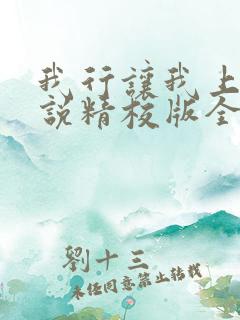 我行讓我上
說精校版全
劉十三
未经同意禁止转载